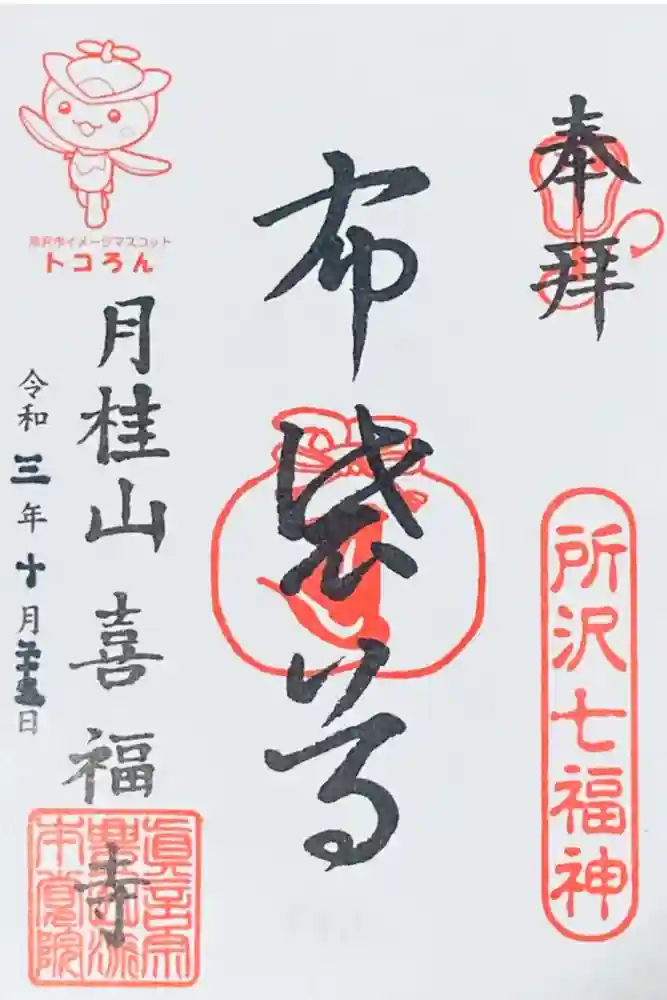 奉拝
所沢七福神
布袋尊
所沢市イメージマスコット
トコろん
月桂山 喜福寺
令和三年十月二十五日